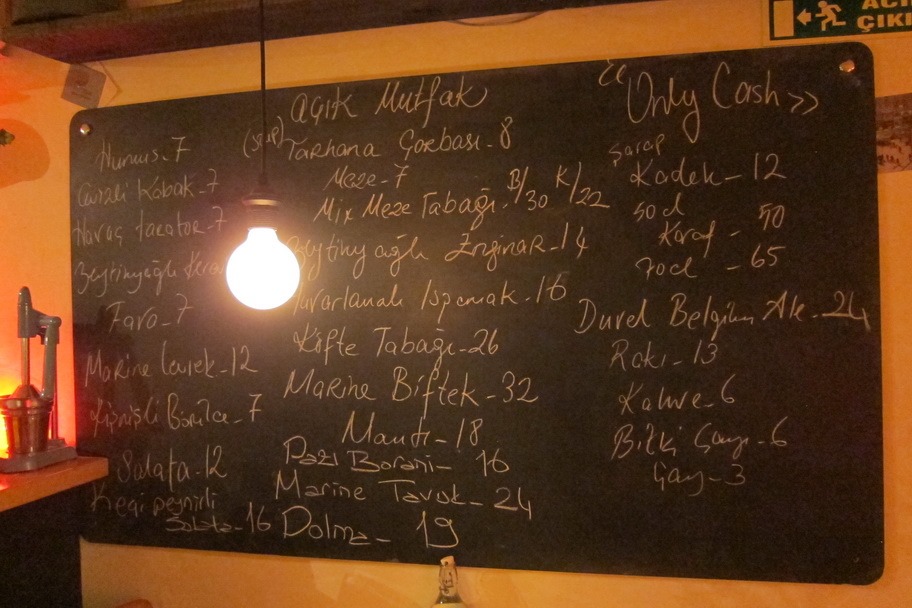 ACİL
ÇIKI
Açık Mutfak
Only Cash >>
Humus-7
Cevizli Kabak-7
Havuç tarator-7
Zeytinyağlı
Fava-7
Marine Levrek-12
Kişnişli Börülce-7
Salata-12
Keçi peynirli
Salata-16
(soup) Tarhana Çorbası-8
Meze-7
Mix Meze Tabağı. B/30 K/22
Zeytinyağlı Enginar-14
Yuvarlamalı Ispanak-16
Köfte Tabağı-26
Marine Biftek-32
Mantı-18
Pazı Borani-16
Marine Tavuk-24
Dolma-19
Şarap
Kadeh-12
50cl
Karaf-50
70cl-65
Duvel Belgium Ale-24
Rakı-13
Kahve-6
Bitki Çayı-6
Çay-3